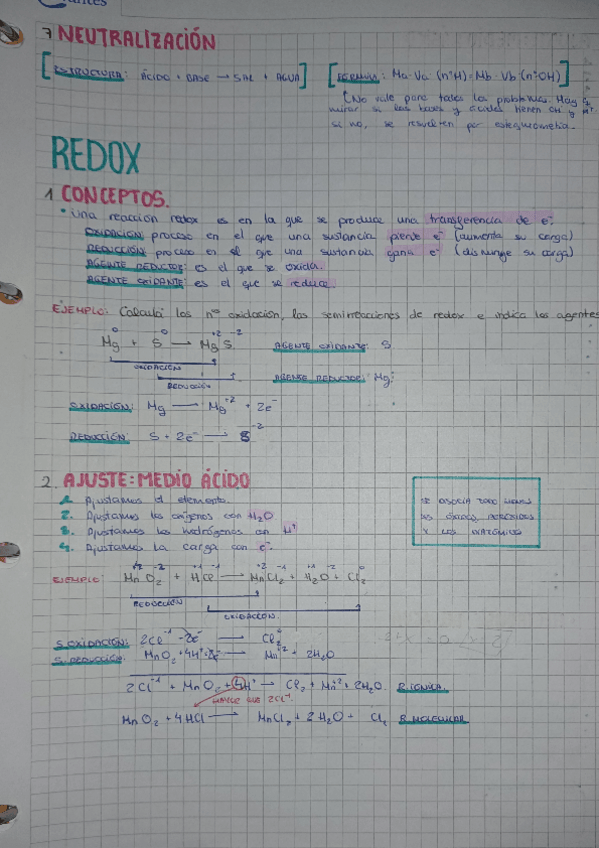 7 NEUTRALIZACIÓN
[ESTRUCTURA: ÁCIDO + BASE → SAL + AGUA] [FÓRMULA: Ma·Va·(nºH)=Mb·Vb·(nºOH)]
(No vale para todos los problemas. Hay q
mirar si las bases y ácidos tienen OH y H⁺.
si no, se resuelven por estequiometría.
REDOX
1 CONCEPTOS.
• Una reacción redox es en la que se produce una transferencia de e⁻.
OXIDACIÓN: proceso en el que una sustancia pierde e⁻ (aumenta su carga)
REDUCCIÓN: proceso en el que una sustancia gana e⁻ (disminuye su carga)
AGENTE REDUCTOR: es el que se oxida.
AGENTE OXIDANTE: es el que se reduce.
EJEMPLO: Calcula los nº oxidación, las semirreacciones de redox e indica los agentes
0 0 +2 -2
Mg + S → Mg S. AGENTE OXIDANTE: S
OXIDACIÓN
REDUCCIÓN AGENTE REDUCTOR: Mg
OXIDACIÓN: Mg → Mg⁺² + 2e⁻
REDUCCIÓN: S + 2e⁻ → S⁻²
2. AJUSTE: MEDIO ÁCIDO
1. Ajustamos el elemento.
2. Ajustamos los oxígenos con H₂O
3. Ajustamos los hidrógenos con H⁺
4. Ajustamos la carga con e⁻.
SE DISOCIA TODO MENOS
LOS ÓXIDOS, PERÓXIDOS
Y LOS DIATÓMICOS
EJEMPLO: MnO₂ + HCl → MnCl₂ + H₂O + Cl₂
REDUCCIÓN
OXIDACIÓN
S.OXIDACIÓN: 2Cl⁻¹ - 2e⁻ → Cl₂
S.REDUCCIÓN: MnO₂ + 4H⁺ + 2e⁻ → Mn⁺² + 2H₂O
2Cl⁻¹ + MnO₂ + 4H⁺ → Cl₂ + Mn⁺² + 2H₂O R.IÓNICA.
MnO₂ + 4HCl → MnCl₂ + 2H₂O + Cl₂ R.MOLECULAR